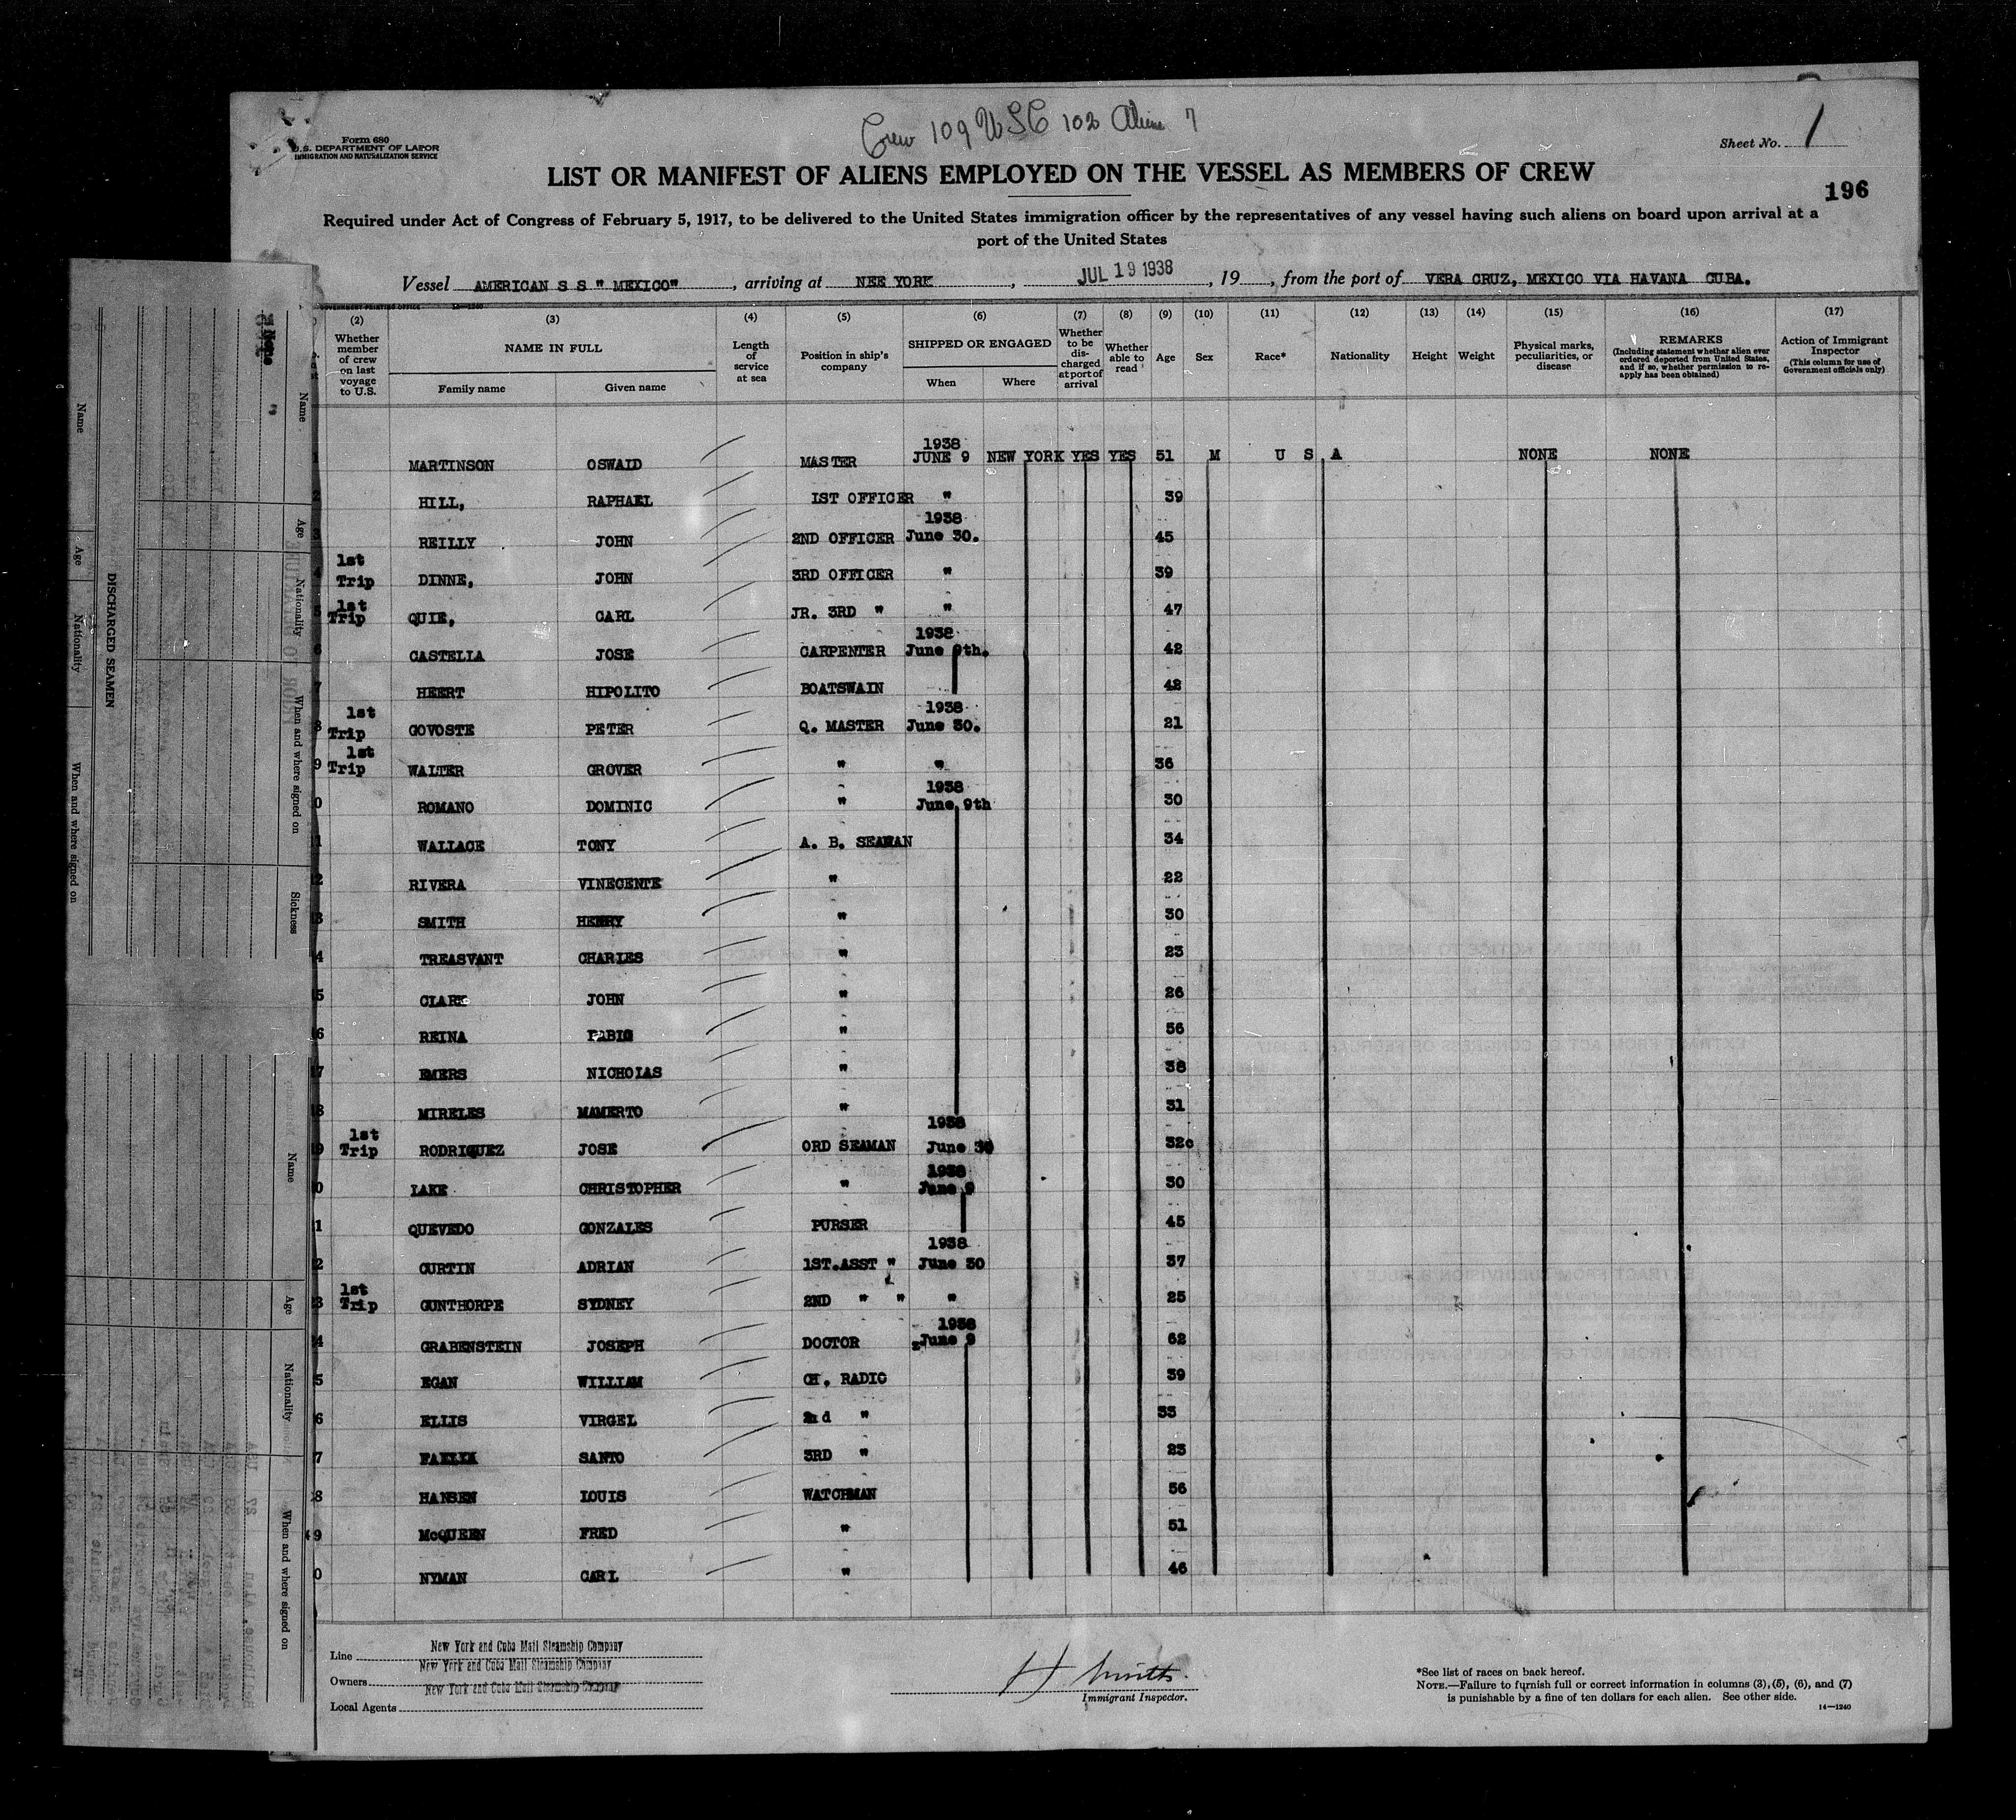 Crew 109 USC 102 Aliens 7
Form 680
U.S. DEPARTMENT OF LABOR
IMMIGRATION AND NATURALIZATION SERVICE
Sheet No. 1
LIST OR MANIFEST OF ALIENS EMPLOYED ON THE VESSEL AS MEMBERS OF CREW
196
Required under Act of Congress of February 5, 1917, to be delivered to the United States immigration officer by the representatives of any vessel having such aliens on board upon arrival at a
port of the United States
Vessel AMERICAN S S " MEXICO" , arriving at NEE YORK , JUL 19 1938 , 19 , from the port of VERA CRUZ, MEXICO VIA HAVANA CUBA.
(2) (3) (4) (5) (6) (7) (8) (9) (10) (11) (12) (13) (14) (15) (16) (17)
Whether member of crew on last voyage to U.S.
NAME IN FULL
Family name Given name
Length of service at sea
Position in ship's company
SHIPPED OR ENGAGED
When Where
Whether to be discharged at port of arrival
Whether able to read
Age Sex Race* Nationality Height Weight
Physical marks, peculiarities, or disease
REMARKS
(Including statement whether alien ever ordered deported from United States, and if so, whether permission to re-apply has been obtained)
Action of Immigrant Inspector
(This column for use of Government officials only)
1 MARTINSON OSWAID MASTER 1938 JUNE 9 NEW YORK YES YES 51 M U S A NONE NONE
2 HILL, RAPHAEL 1ST OFFICER " 39
3 REILLY JOHN 2ND OFFICER 1938 June 30. 45
4 1st Trip DINNE, JOHN 3RD OFFICER " 39
5 1st Trip QUIE, CARL JR. 3RD " " 47
6 CASTELLA JOSE CARPENTER 1938 June 9th. 42
7 HEERT HIPOLITO BOATSWAIN 42
8 1st Trip GOVOSTE PETER Q. MASTER 1938 June 30. 21
9 1st Trip WALTER GROVER " " 36
0 ROMANO DOMINIC " 1938 June 9th 30
1 WALLACE TONY A. B. SEAMAN 34
2 RIVERA VINECENTE " 22
3 SMITH HENRY " 30
4 TREASVANT CHARLES " 23
5 CLARK JOHN " 26
6 REINA PABIO " 56
7 EMERS NICHOIAS " 38
8 MIRELES MAMERTO " 31
9 1st Trip RODRIQUEZ JOSE ORD SEAMAN 1938 June 30 32
0 LAKE CHRISTOPHER " 1938 June 9 30
1 QUEVEDO GONZALES PURSER 45
2 CURTIN ADRIAN 1ST.ASST " 1938 June 30 37
3 1st Trip GUNTHORPE SYDNEY 2ND " " " 25
4 GRABENSTEIN JOSEPH DOCTOR 1938 June 9 62
5 EGAN WILLIAM CH. RADIO 39
6 ELLIS VIRGEL 2nd " 33
7 SANTO 3RD " 23
8 HANSEN LOUIS WATCHMAN 56
9 McQUEEN FRED " 51
0 NYMAN CARL " 46
Line New York and Cuba Mail Steamship Company
Owners New York and Cuba Mail Steamship Company
Local Agents New York and Cuba Mail Steamship Company
H Smith
Immigrant Inspector.
*See list of races on back hereof.
NOTE.—Failure to furnish full or correct information in columns (3), (5), (6), and (7)
is punishable by a fine of ten dollars for each alien. See other side.
14—1240
DISCHARGED SEAMEN
Name Age Nationality When and where signed on
Name Age Nationality When and where signed on Sickness
Name Age Nationality When and where signed on